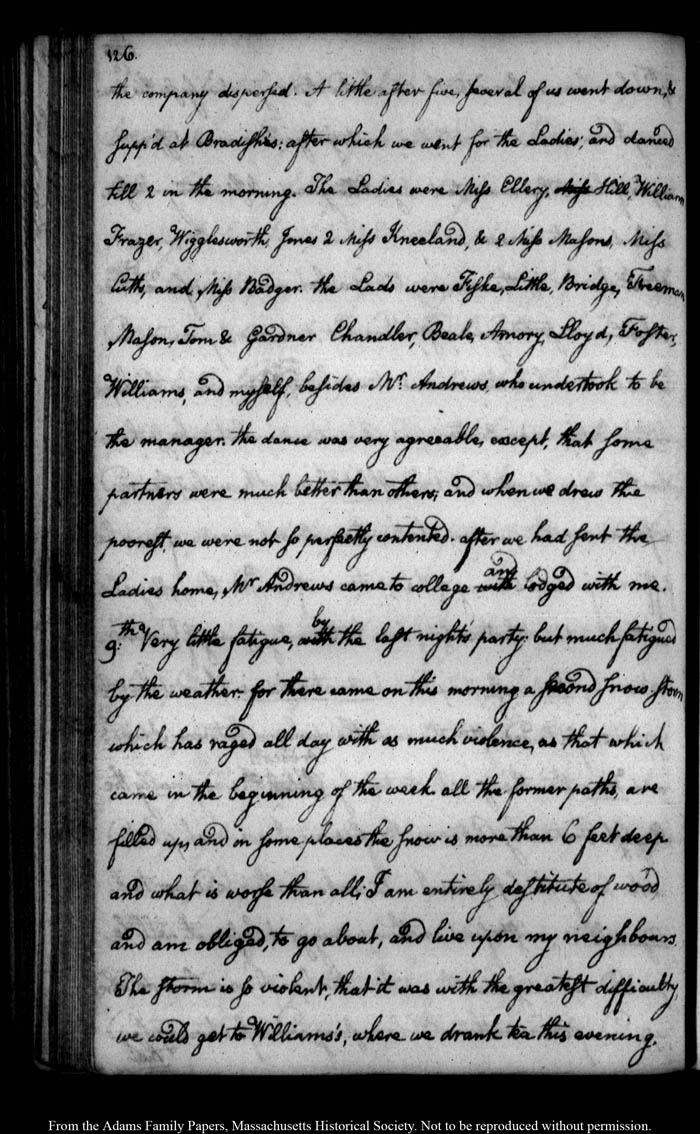 126.
the company dispersed. A little after five, several of us went down, &
supp'd at Bradish's; after which we went for the Ladies; and danced
till 2 in the morning. The Ladies were Miss Ellery, Miss Hill, William
Frazer, Wigglesworth, Jones 2 Miss Kneeland, & 2 Miss Masons, Miss
Cutts, and Miss Badger. the Lads were Fiske, Little, Bridge, Freeman
Mason, Tom & Gardner Chandler, Beale, Amory, Lloyd, Foster,
Williams, and myself, besides Mr. Andrews, who undertook to be
the manager. the dance was very agreeable, except, that some
partners were much better than others; and when we drew the
poorest, we were not so perfectly contented. after we had sent the
and
Ladies home, Mr Andrews came to college with lodged with me.
by
9:th Very little fatigue, with the last night's party: but much fatigued
by the weather. for there came on this morning a second snow storm
which has raged all day with as much violence, as that which
came in the beginning of the week. all the former paths, are
filled up, and in some places the snow is more than 6 feet deep
and what is worse than all, I am entirely destitute of wood
and am obliged, to go about, and live upon my neighbours.
The storm is so violent, that it was with the greatest difficulty
we could get to Williams's, where we drank tea this evening.
From the Adams Family Papers, Massachusetts Historical Society. Not to be reproduced without permission.